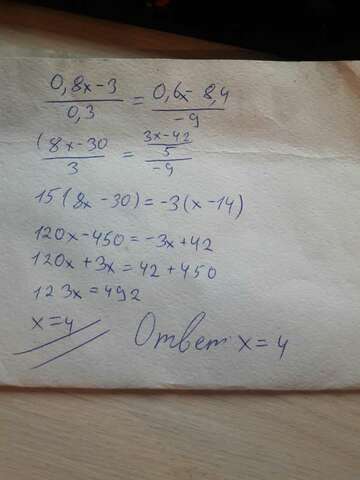 0,8x-3 / 0,3 = 0,6x-8,4 / -9
(8x-30 / 3 = 3x-42 / 5 / -9
15(8x-30)=-3(x-14)
120x-450=-3x+42
120x+3x=42+450
123x=492
x=4
Ответ x=4